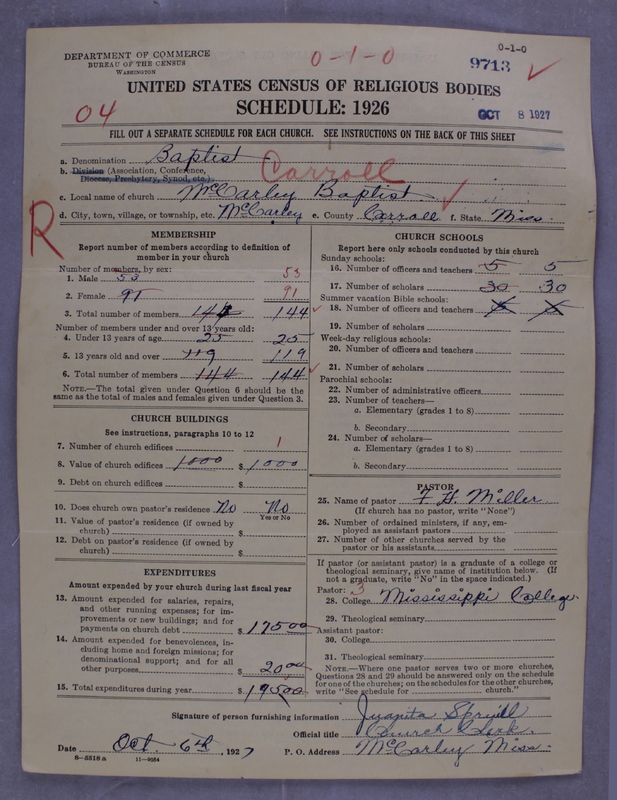 DEPARTMENT OF COMMERCE
BUREAU OF THE CENSUS
WASHINGTON
0-1-0
0-1-0
9713
UNITED STATES CENSUS OF RELIGIOUS BODIES
SCHEDULE: 1926
04
OCT 8 1927
FILL OUT A SEPARATE SCHEDULE FOR EACH CHURCH. SEE INSTRUCTIONS ON THE BACK OF THIS SHEET
a. Denomination Baptist
b. Division (Association, Conference, Carroll
Diocese, Presbytery, Synod, etc.)
c. Local name of church McCarley Baptist
d. City, town, village, or township, etc. McCarley e. County Carroll f. State Miss.
R
MEMBERSHIP
Report number of members according to definition of
member in your church
Number of members, by sex:
1. Male 53 53
2. Female 91 91
3. Total number of members 144 144
Number of members under and over 13 years old:
4. Under 13 years of age 25 25
5. 13 years old and over 119 119
6. Total number of members 144 144
NOTE.—The total given under Question 6 should be
same as the total of males and females given under Question 3.
CHURCH BUILDINGS
See instructions, paragraphs 10 to 12
7. Number of church edifices 1
8. Value of church edifices 1000 $ 1000
9. Debt on church edifices $
10. Does church own pastor's residence No No
Yes or No
11. Value of pastor's residence (if owned by
church) $
12. Debt on pastor's residence (if owned by
church) $
EXPENDITURES
Amount expended by your church during last fiscal year
13. Amount expended for salaries, repairs,
and other running expenses; for im-
provements or new buildings; and for
payments on church debt $ 175 00
14. Amount expended for benevolences, in-
cluding home and foreign missions; for
denominational support; and for all
other purposes $ 20 00
15. Total expenditures during year $ 195 00
CHURCH SCHOOLS
Report here only schools conducted by this church
Sunday schools:
16. Number of officers and teachers 5 5
17. Number of scholars 30 30
Summer vacation Bible schools:
18. Number of officers and teachers
19. Number of scholars
Week-day religious schools:
20. Number of officers and teachers
21. Number of scholars
Parochial schools:
22. Number of administrative officers
23. Number of teachers—
a. Elementary (grades 1 to 8)
b. Secondary
24. Number of scholars—
a. Elementary (grades 1 to 8)
b. Secondary
PASTOR
25. Name of pastor F. H. Miller
(If church has no pastor, write "None")
26. Number of ordained ministers, if any, em-
ployed as assistant pastors
27. Number of other churches served by the
pastor or his assistants
If pastor (or assistant pastor) is a graduate of a college or
theological seminary, give name of institution below. (If
not a graduate, write "No" in the space indicated.)
Pastor: 3
28. College Mississippi College
29. Theological seminary
Assistant pastor:
30. College
31. Theological seminary
NOTE.—Where one pastor serves two or more churches,
Questions 28 and 29 should be answered only on the schedule
for one of the churches; on the schedules for the other churches,
write "See schedule for church."
Signature of person furnishing information Juanita Spruill
Official title Church Clerk
Date Oct. 6th, 1927 P. O. Address McCarley Miss.
8-5518a 11-9054